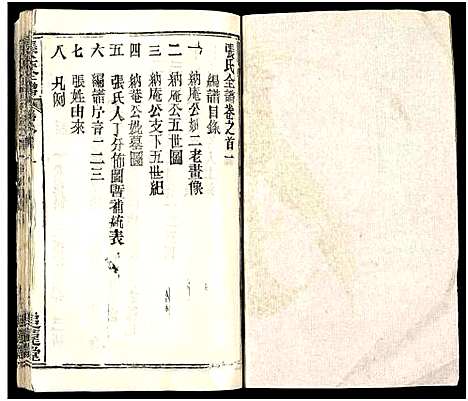 張氏全譜卷之首一
編譜目錄
一 納庵公媲二老畫像
二 納庵公支五世圖
三 納庵公支下五世紀
四 納菴公媲墓圖
五 張氏人丁分佈圖暫補統表
六 編譜序言一二三
七 張姓由來
八 凡例